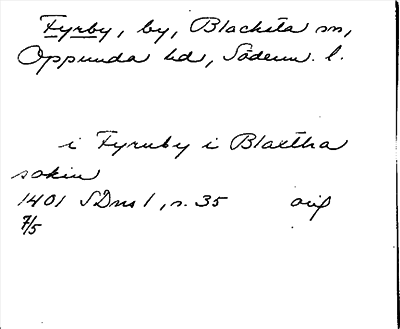 Fyrby, by, Blacksta sn,
Oppunda hd, Söderm. l.
i Fyrnby i Blaxtha
sokin
1401 SDns 1, s. 35 orig
7/5